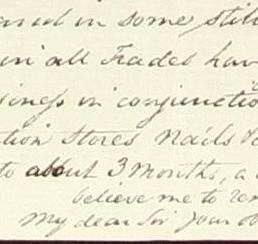 in some still
in all Trades hav
siness in conjunctio
tion Stores Nails &c
to about 3 Months, a
believe me to rem
My dear Sir Your ob